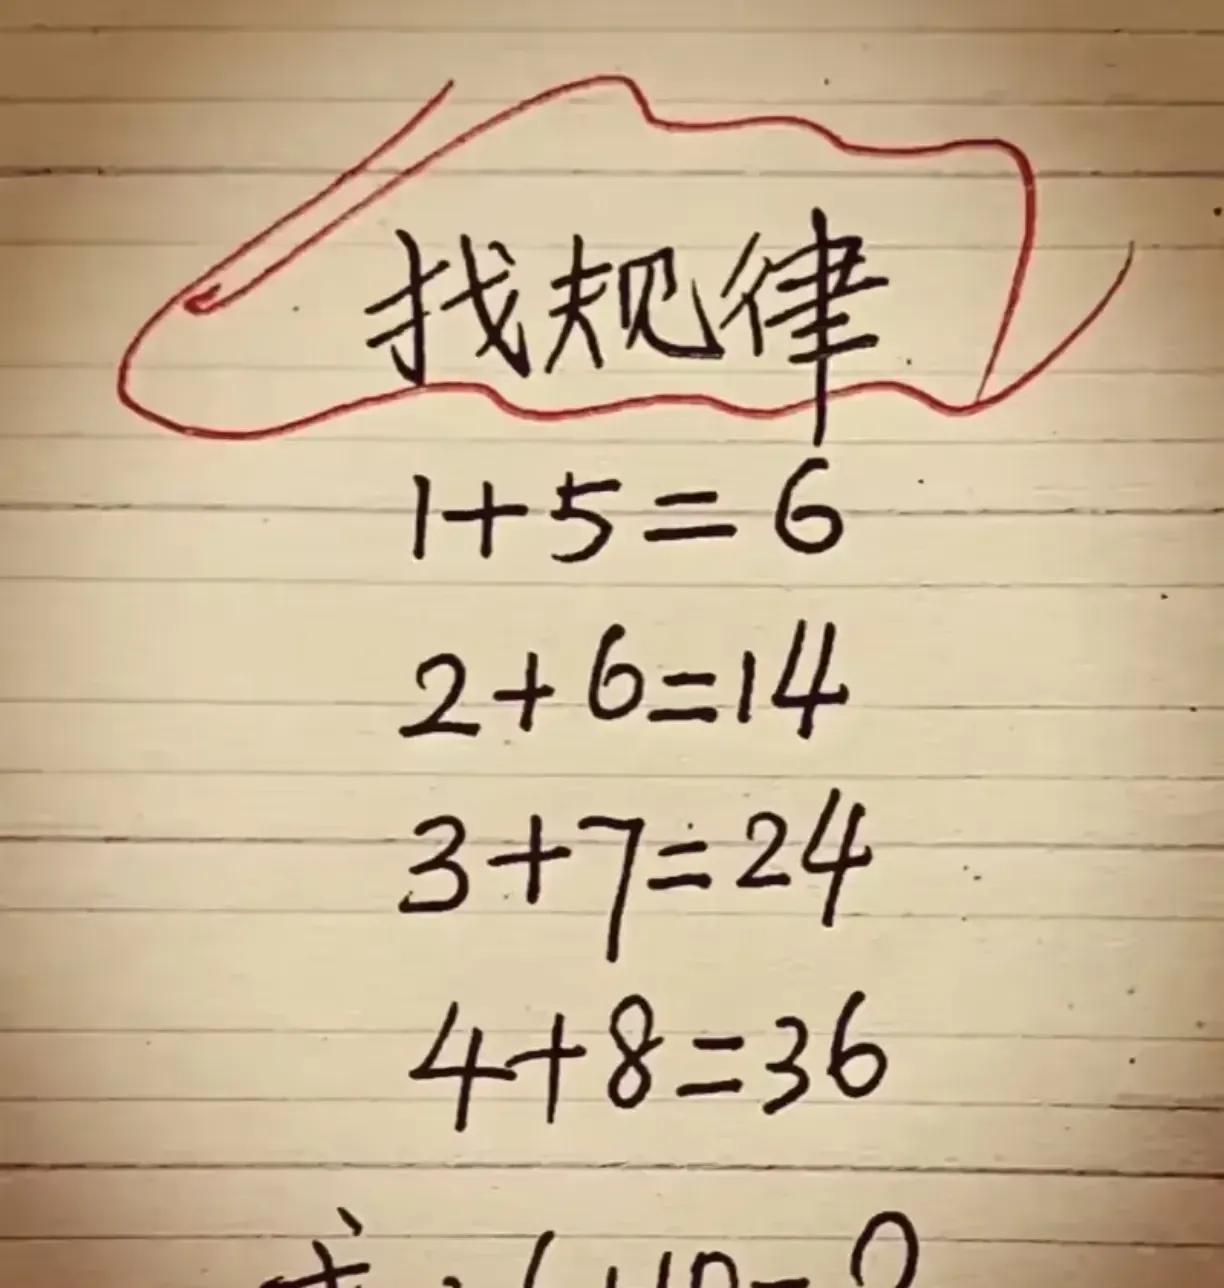 找规律
1+5=6
2+6=14
3+7=24
4+8=36